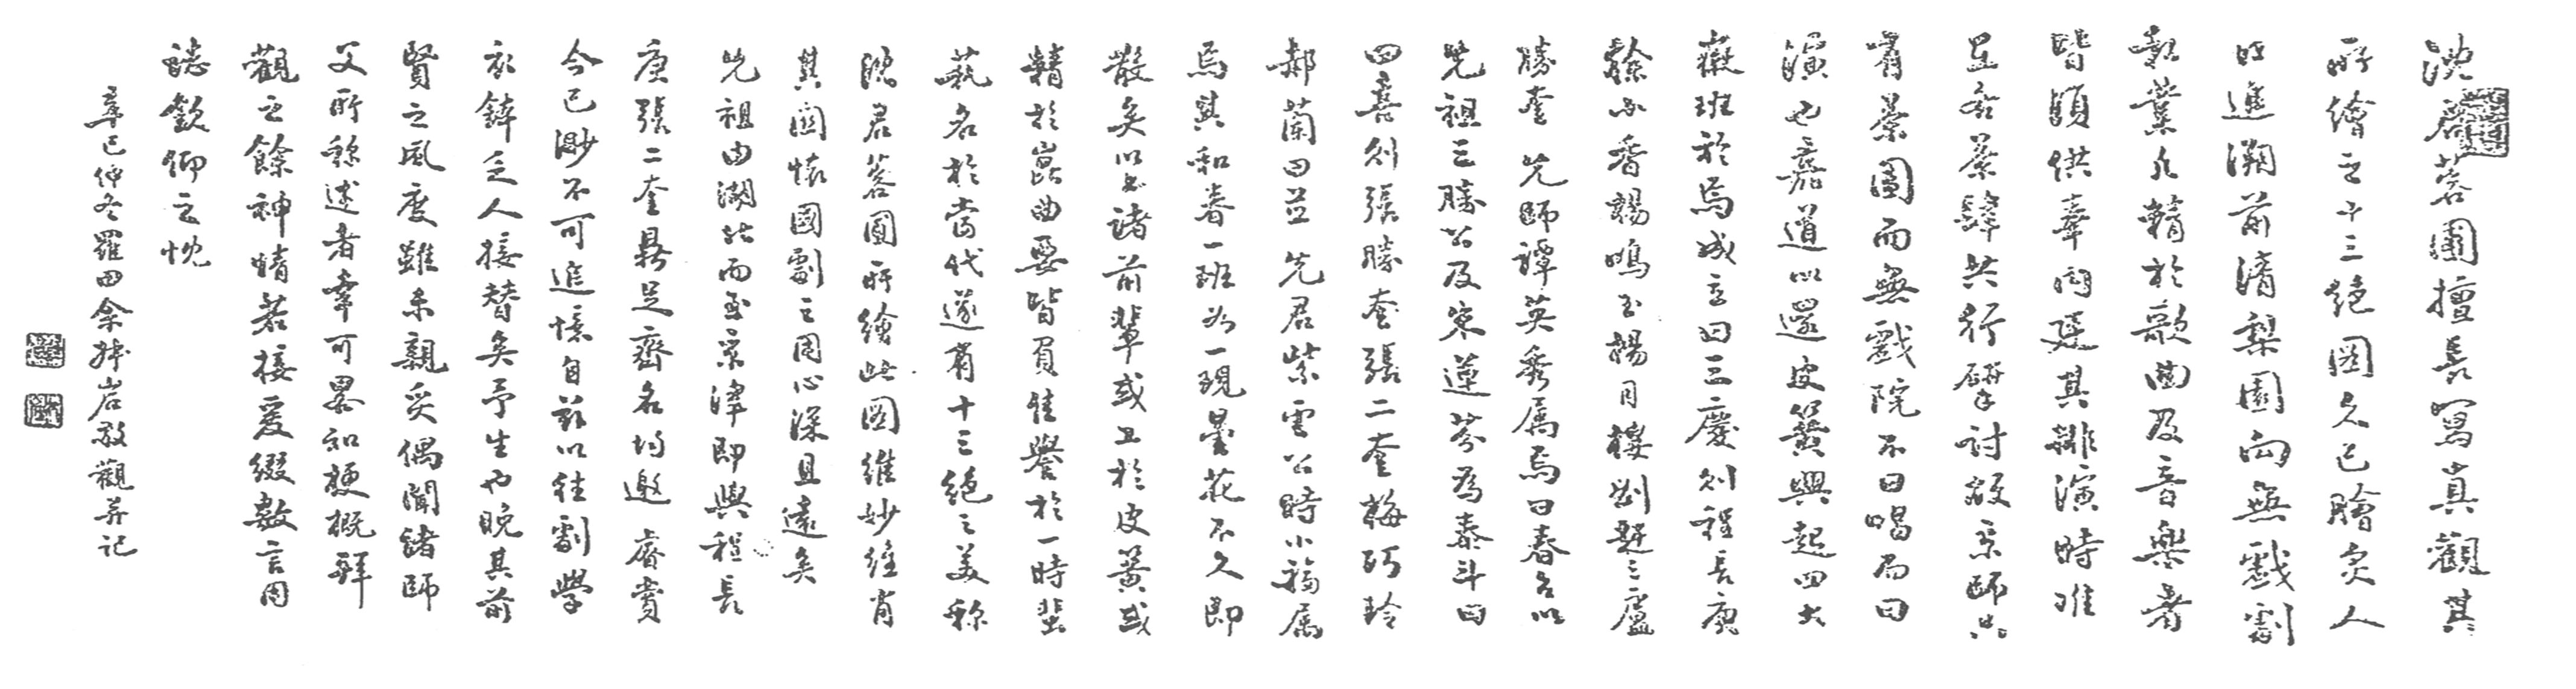 沈君蓉圃擅長寫真觀其
所繪之十三絕圖久已膾炙人
口進溯前清梨園向無戲劇
氍業凡精於歌曲及音樂者
皆須供奉内廷其排演時唯
至各茶肆共行研討故京師只
有茶園而無戲院不曰唱而曰
演也嘉道以還皮簧興起四大
徽班於焉成立曰三慶則程長庚
徐小香楊鳴玉楊月樓劉趕三盧
勝奎先師譚英秀屬焉曰春台以
先祖三勝公及宋蓮芬為泰斗曰
四喜則張勝奎張二奎梅巧玲
郝蘭田並先君紫雲公時小福屬
焉其和春一班如一現曇花不久即
散矣以上諸前輩或工於皮簧或
精於崑曲要皆負佳譽於一時蜚
藝名於當代遂有十三絕之美稱
沈君蓉圃所繪此圖維妙維肖
其關懷國劇之用心深且遠矣
先祖由湖北而至京津即與程長
庚張二奎鼎足齊名均邀睿賞
今已渺不可追憶自茲以往劇學
衣鉢乏人接替矣予生也晚其前
賢之風度雖未親炙偶聞諸師
父所稱述者幸可畧知梗概拜
觀之餘神情若接爰綴數言用
誌欽仰之忱
辛巳仲冬羅田余叔岩敬觀并記